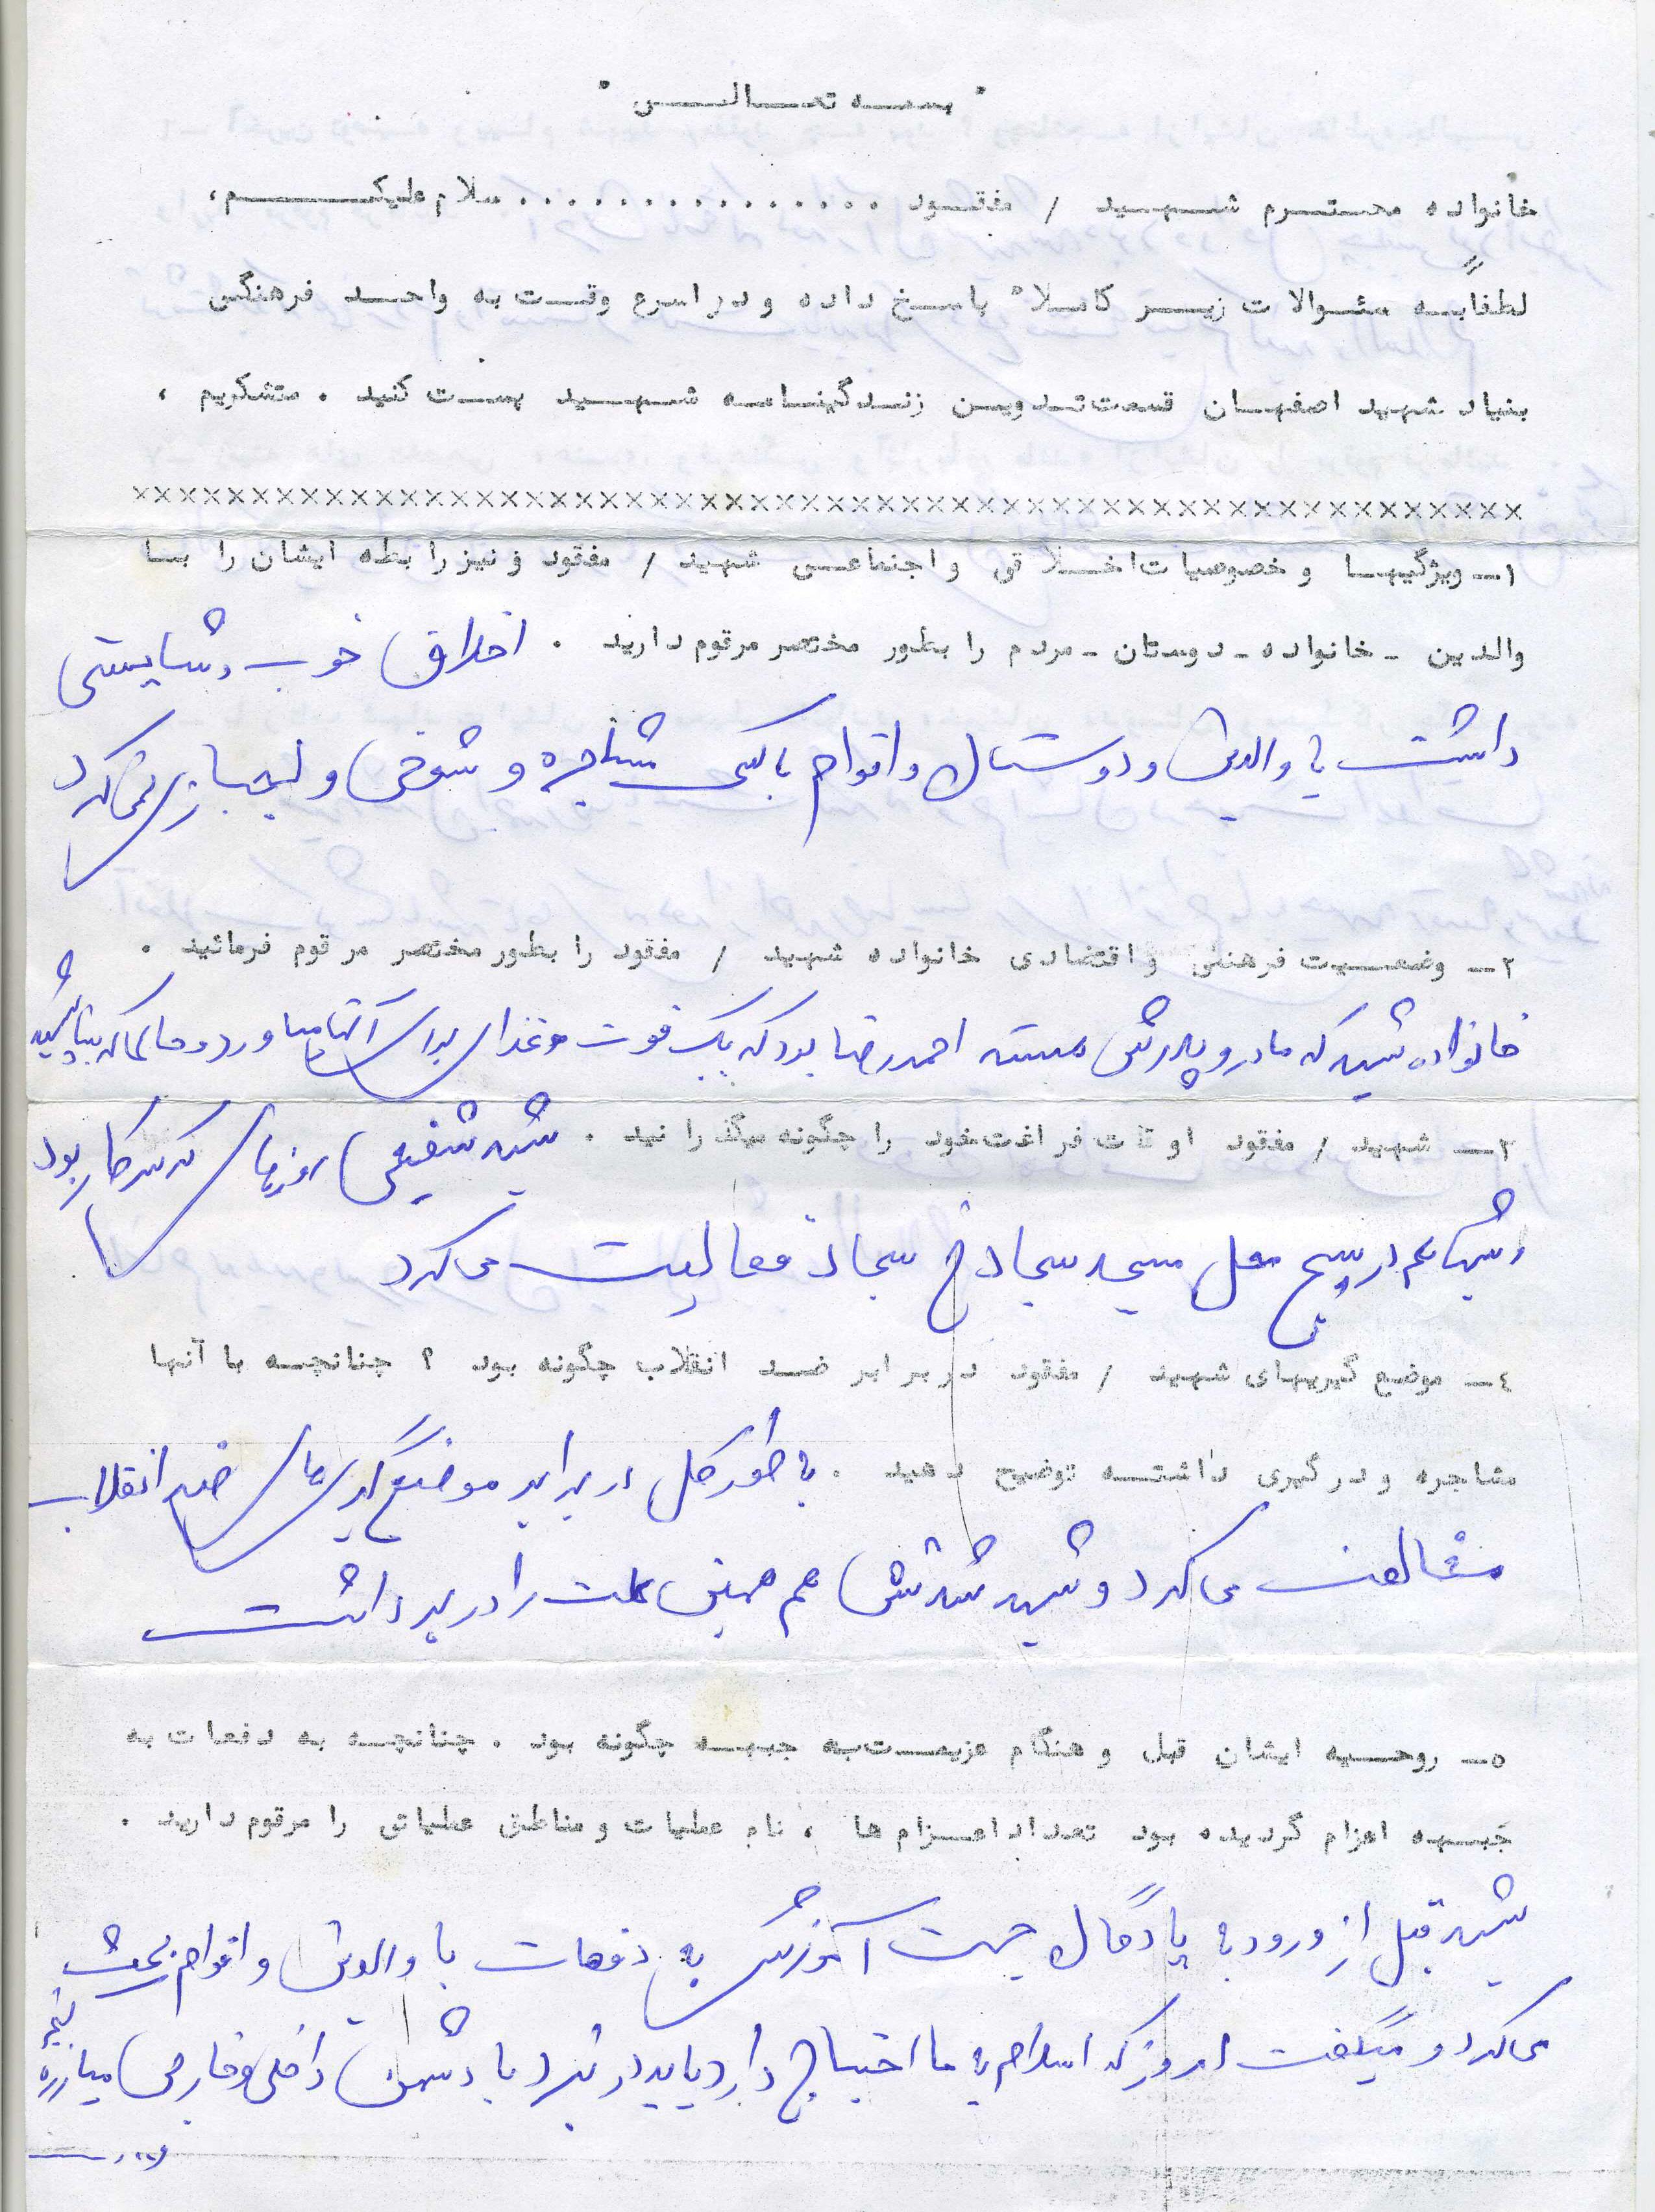 " بسمه تعالی "
خانواده محترم شهید / مفقود ................ سلام علیکم،
لطفاً به سئوالات زیر کاملاً پاسخ داده و در اسرع وقت به واحد فرهنگی
بنیاد شهید اصفهان قسمت تدوین زندگینامه شهید پست کنید . متشکریم ،
xxxxxxxxxxxxxxxxxxxxxxxxxxxxxxxxxxxxxxxxxxxxxxxxxxxxxxxxx
۱- ویژگیها و خصوصیات اخلاقی و اجتماعی شهید / مفقود و نیز رابطه ایشان را با
والدین - خانواده - دوستان - مردم را بطور مختصر مرقوم دارید . اخلاق خوب و شایستی
داشت با والدین و دوستان و اقوام با کسی مشاجره و شوخی و لجبازی نمی‌کرد
۲- وضعیت فرهنگی و اقتصادی خانواده شهید / مفقود را بطور مختصر مرقوم فرمائید .
خانواده شهید که مادر و پدرش هستند احمدرضا بود که یک قوت و غذای برای آنها میاورد و حالا که
۳- شهید / مفقود اوقات فراغت خود را چگونه میگذرانید . شهید شفیعی روزهای که سرکار بود
و شبها هم در بسیج محل مسجد سجاد خ سجاد فعالیت می‌کرد
٤- موضع گیریهای شهید / مفقود در برابر ضد انقلاب چگونه بود ؟ چنانچه با آنها
مشاجره و درگیری داشته توضیح دهید . به طور کل در برابر موضع گیری‌های ضد انقلاب
مخالفت می‌کرد و شهید شدنش هم همین علت را در بر داشت
۵- روحیه ایشان قبل و هنگام عزیمت به جبهه چگونه بود . چنانچه به دفعات به
جبهه اعزام گردیده بود تعداد اعزام ها ، نام عملیات و مناطق عملیاتی را مرقوم دارید .
شهید قبل از ورود به پادگان جهت آموزش به دفعات با والدین و اقوام بحث
می‌کرد و میگفت امروز که اسلام به ما احتیاج دارد باید در نبرد با دشمن داخلی و خارجی مبارزه